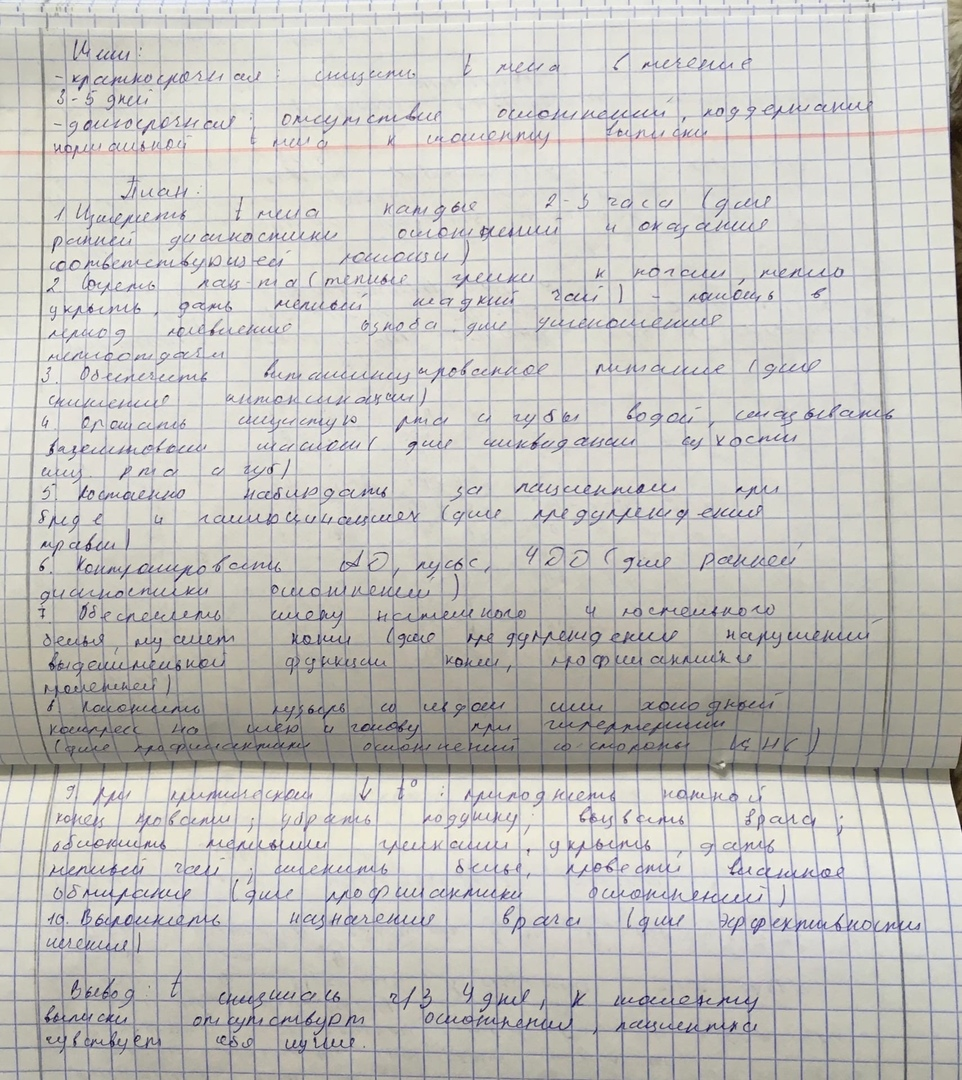 Цели:
- краткосрочная: снизить t тела в течение
3-5 дней
- долгосрочная: отсутствие осложнений, поддержание
нормальной t тела к моменту выписки
План:
1 Измерять t тела каждые 2-3 часа (для
ранней диагностики осложнений и оказания
соответствующей помощи)
2 Согреть пац-та (теплые грелки к ногам, тепло
укрыть, дать теплый сладкий чай) - помощь в
период появления озноба, для уменьшения
теплоотдачи
3. Обеспечить витаминизированное питание (для
снижения интоксикации)
4. Орошать слизистую рта и губы водой, смазывать
вазелиновым маслом (для ликвидации сухости
слиз. рта и губ)
5. Постоянно наблюдать за пациентом при
бреде и галлюцинациях (для предупреждения
травм)
6. Контролировать АД, пульс, ЧДД (для ранней
диагностики осложнений)
7 Обеспечить смену нательного и постельного
белья, туалет кожи (для предупреждения нарушений
выделительной функции кожи, профилактики
пролежней)
8. Положить пузырь со льдом или холодный
компресс на шею и голову при гипертермии
(для профилактики осложнений со стороны ЦНС)
9 При критическом ↓ t°: приподнять ножной
конец кровати; убрать подушку; вызвать врача;
обложить теплыми грелками, укрыть, дать
теплый чай; сменить белье, провести влажное
обтирание (для профилактики осложнений)
10. Выполнять назначения врача (для эффективности
лечения)
Вывод: t снизилась ч/з 4 дня, к моменту
выписки отсутствует осложнения, пациентка
чувствует себя лучше.